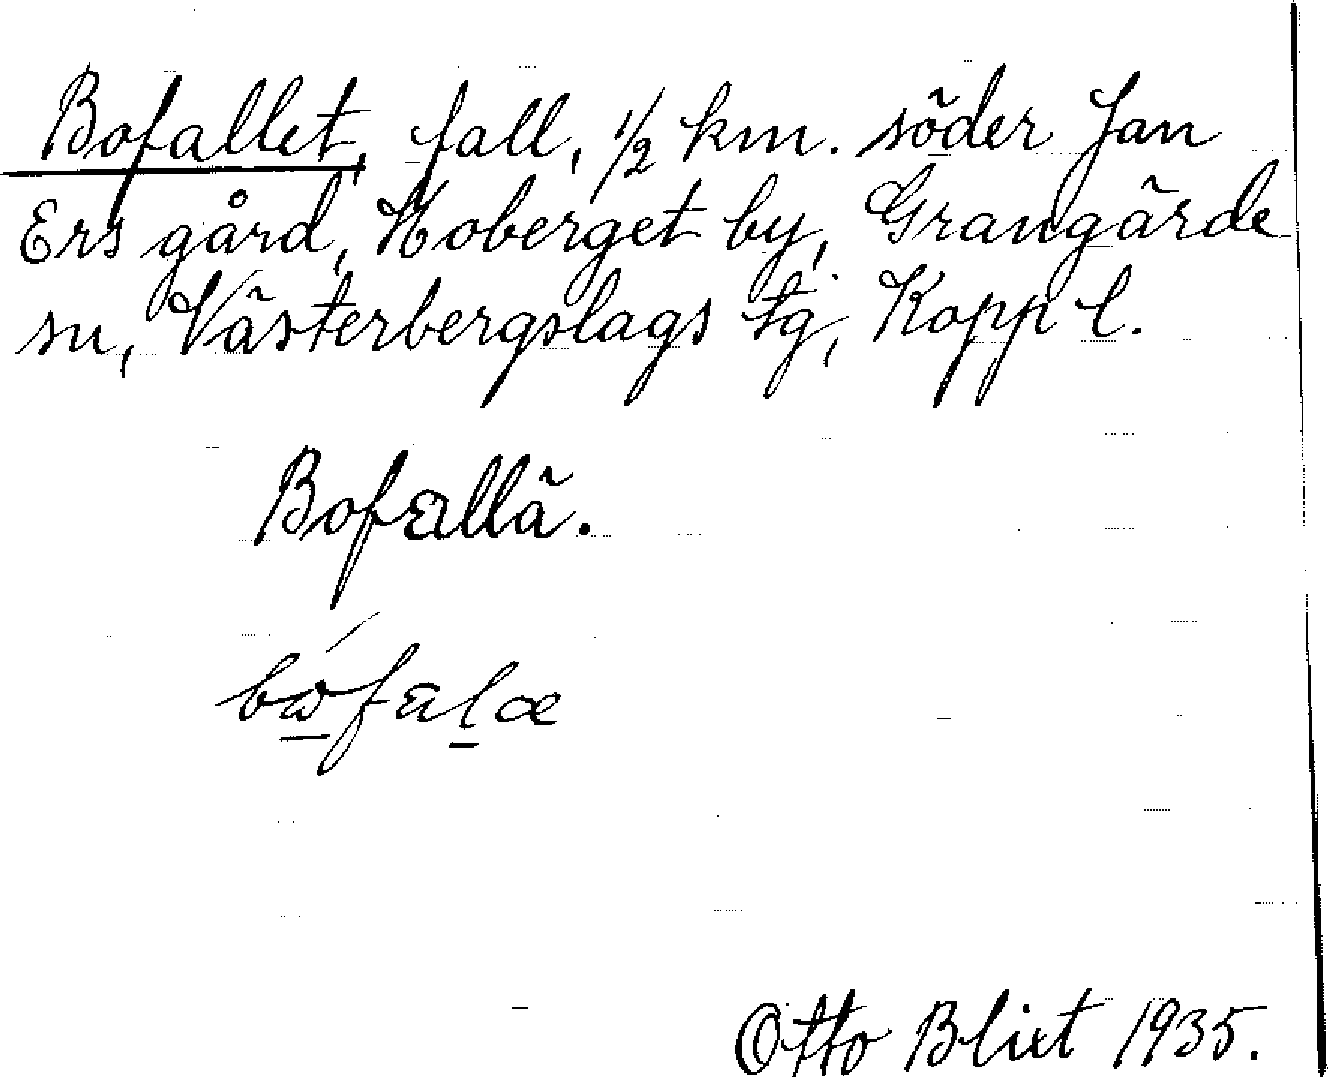 Bofallet, fall, 1/2 km. söder Jan
Ers gård, Hoberget by, Grangärde
sn, Västerbergslags tg, Kopp l.
Bofallä.
Otto Blixt 1935.